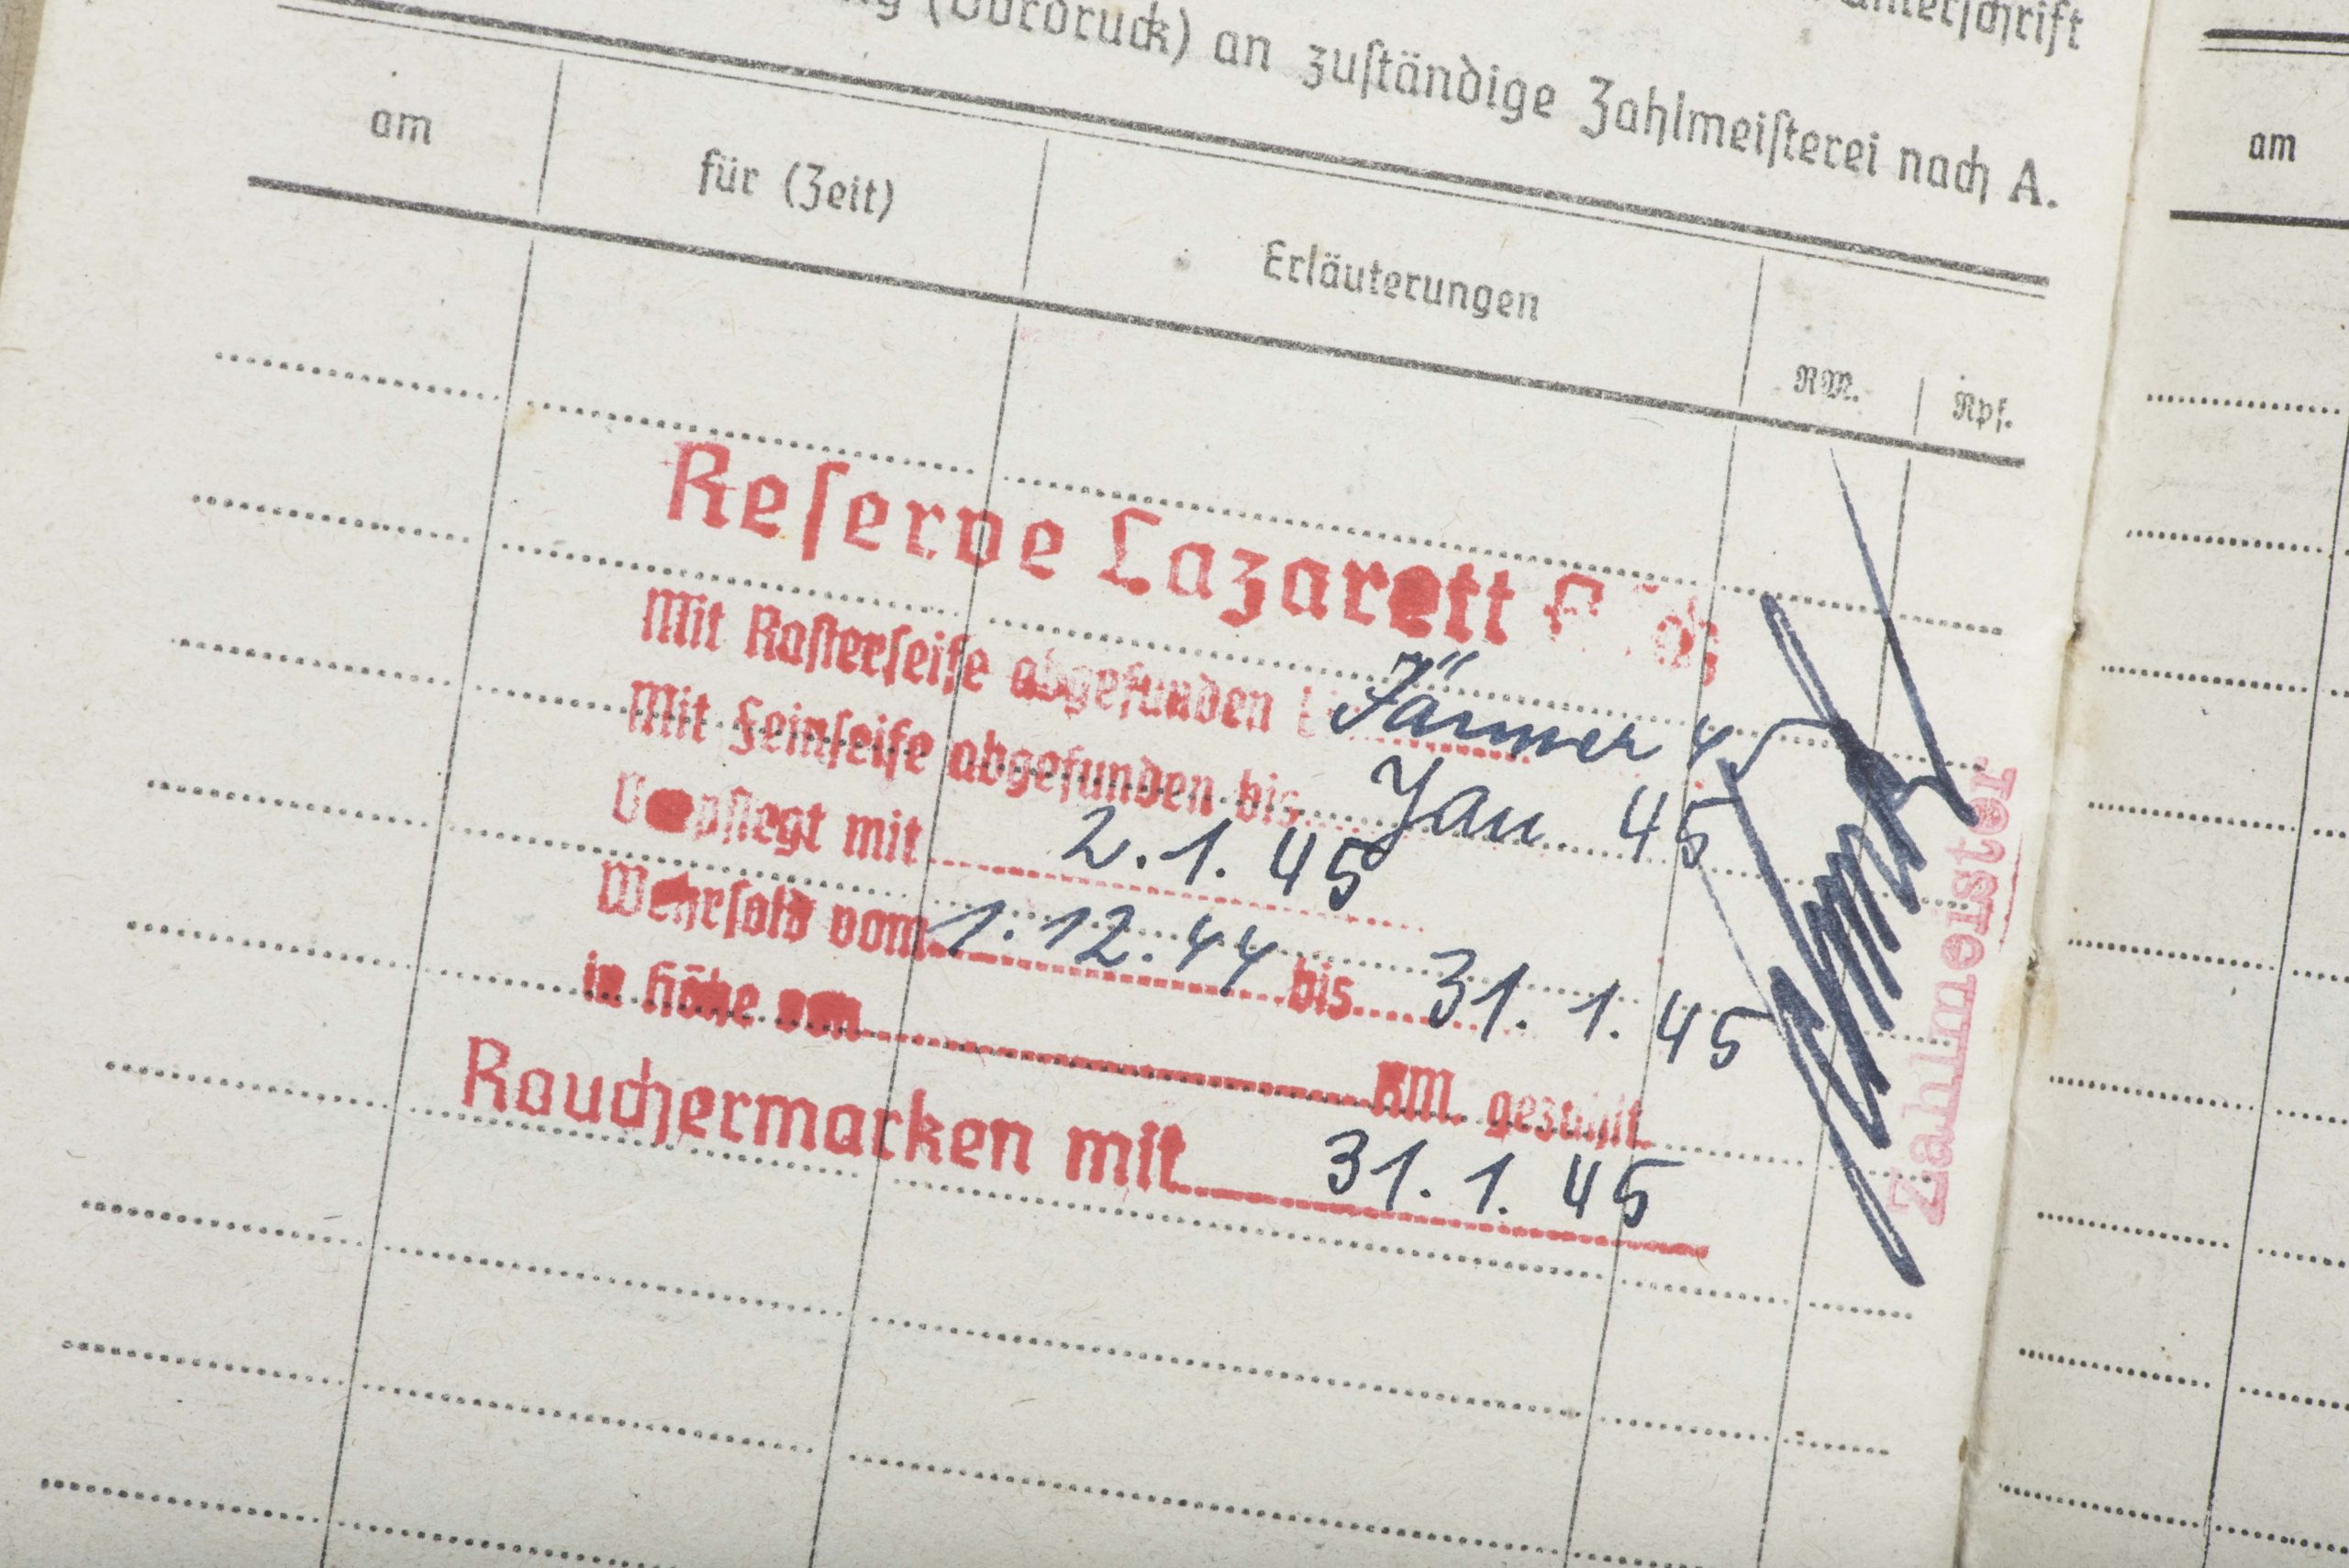 (Vordruck) an zuständige Zahlmeisterei nach A.
am
für (Zeit)
Erläuterungen
RM.
Rpf.
am
Reserve Lazarett
Mit Rasierseife abgefunden Jänner 45
Mit Feinseife abgefunden bis Jan. 45
Verpflegt mit 2.1.45
Wehrsold vom 1.12.44 bis 31.1.45
in Höhe von RM. gezahlt
Rauchermarken mit 31.1.45
Zahlmeister